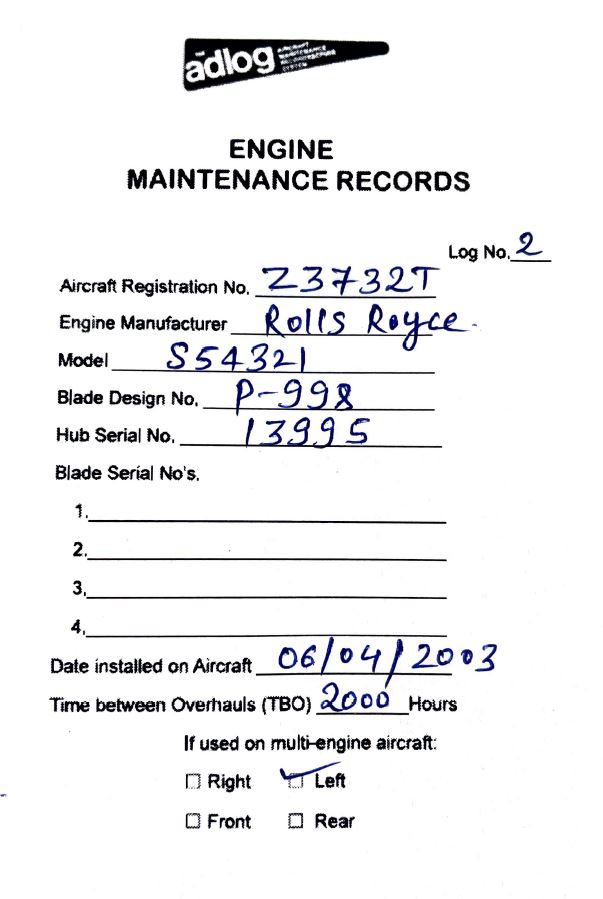 adlog AIRCRAFT
MAINTENANCE
RECORDKEEPING
SYSTEM
ENGINE
MAINTENANCE RECORDS
Log No. 2
Aircraft Registration No. Z3732T
Engine Manufacturer Rolls Royce.
Model S54321
Blade Design No. P-998
Hub Serial No. 13995
Blade Serial No's.
1.
2.
3.
4.
Date installed on Aircraft 06/04/2003
Time between Overhauls (TBO) 2000 Hours
If used on multi-engine aircraft:
☐ Right ☑ Left
☐ Front ☐ Rear